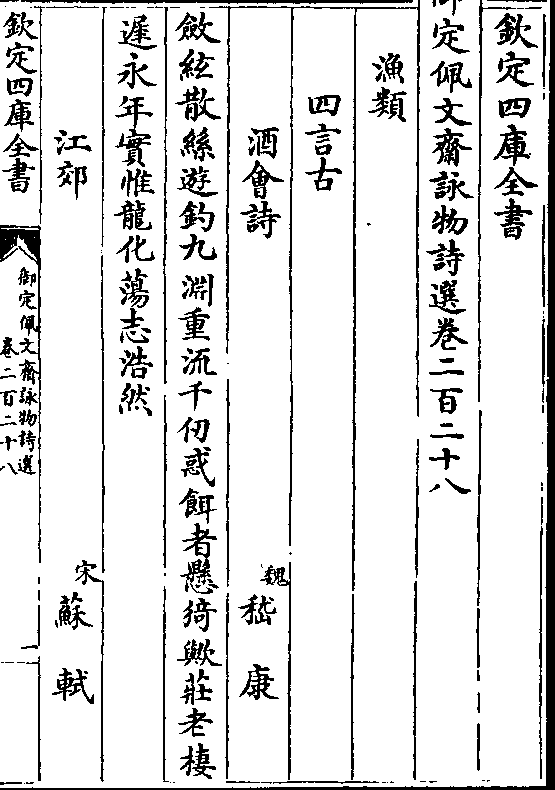 欽定四庫全書
御定佩文齋詠物詩選卷二百二十八
漁類
四言古
酒會詩 魏 嵇康
斂絃散絲遊釣九淵重流千仞惑餌者懸猗歟莊老棲
遲永年實惟龍化蕩志浩然
江郊 宋 蘇軾
欽定四庫全書 御定佩文齋詠物詩選 卷二百二十八 一